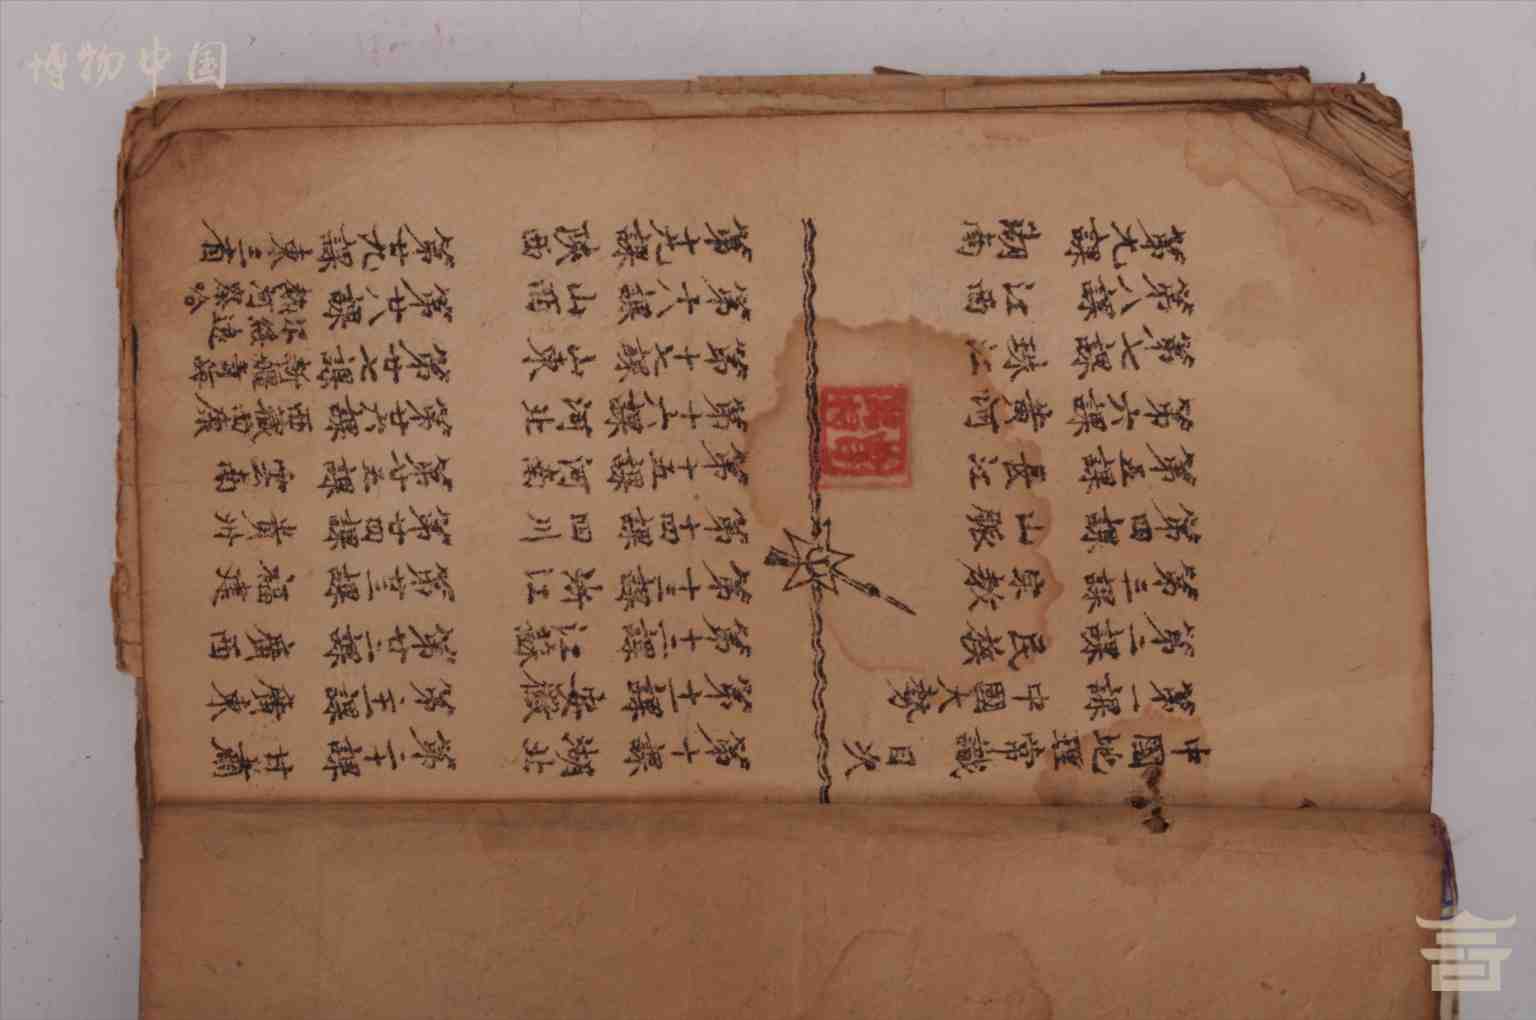 博物中国
中國地理常識目次
第一課 中國大勢
第二課 民族
第三課 宗教
第四課 山脈
第五課 長江
第六課 黃河
第七課 珠江
第八課 江西
第九課 湖南
第十課 湖北
第十一課 安徽
第十二課 江蘇
第十三課 浙江
第十四課 四川
第十五課 河南
第十六課 河北
第十七課 山東
第十八課 山西
第十九課 陝西
第二十課 甘肅
第廿一課 廣東
第廿二課 廣西
第廿三課 福建
第廿四課 貴州
第廿五課 雲南
第廿六課 西藏西康
第廿七課 新疆青海
第廿八課 熱河察哈尔綏遠
第廿九課 東三省